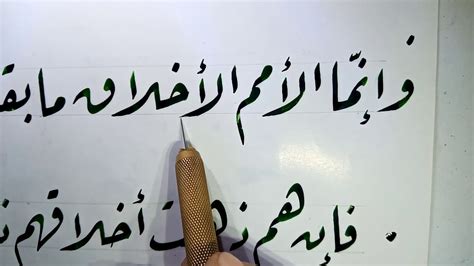 وإنّما الأمم الأخلاق ما
فإن هم ذهبت أخلاقهم